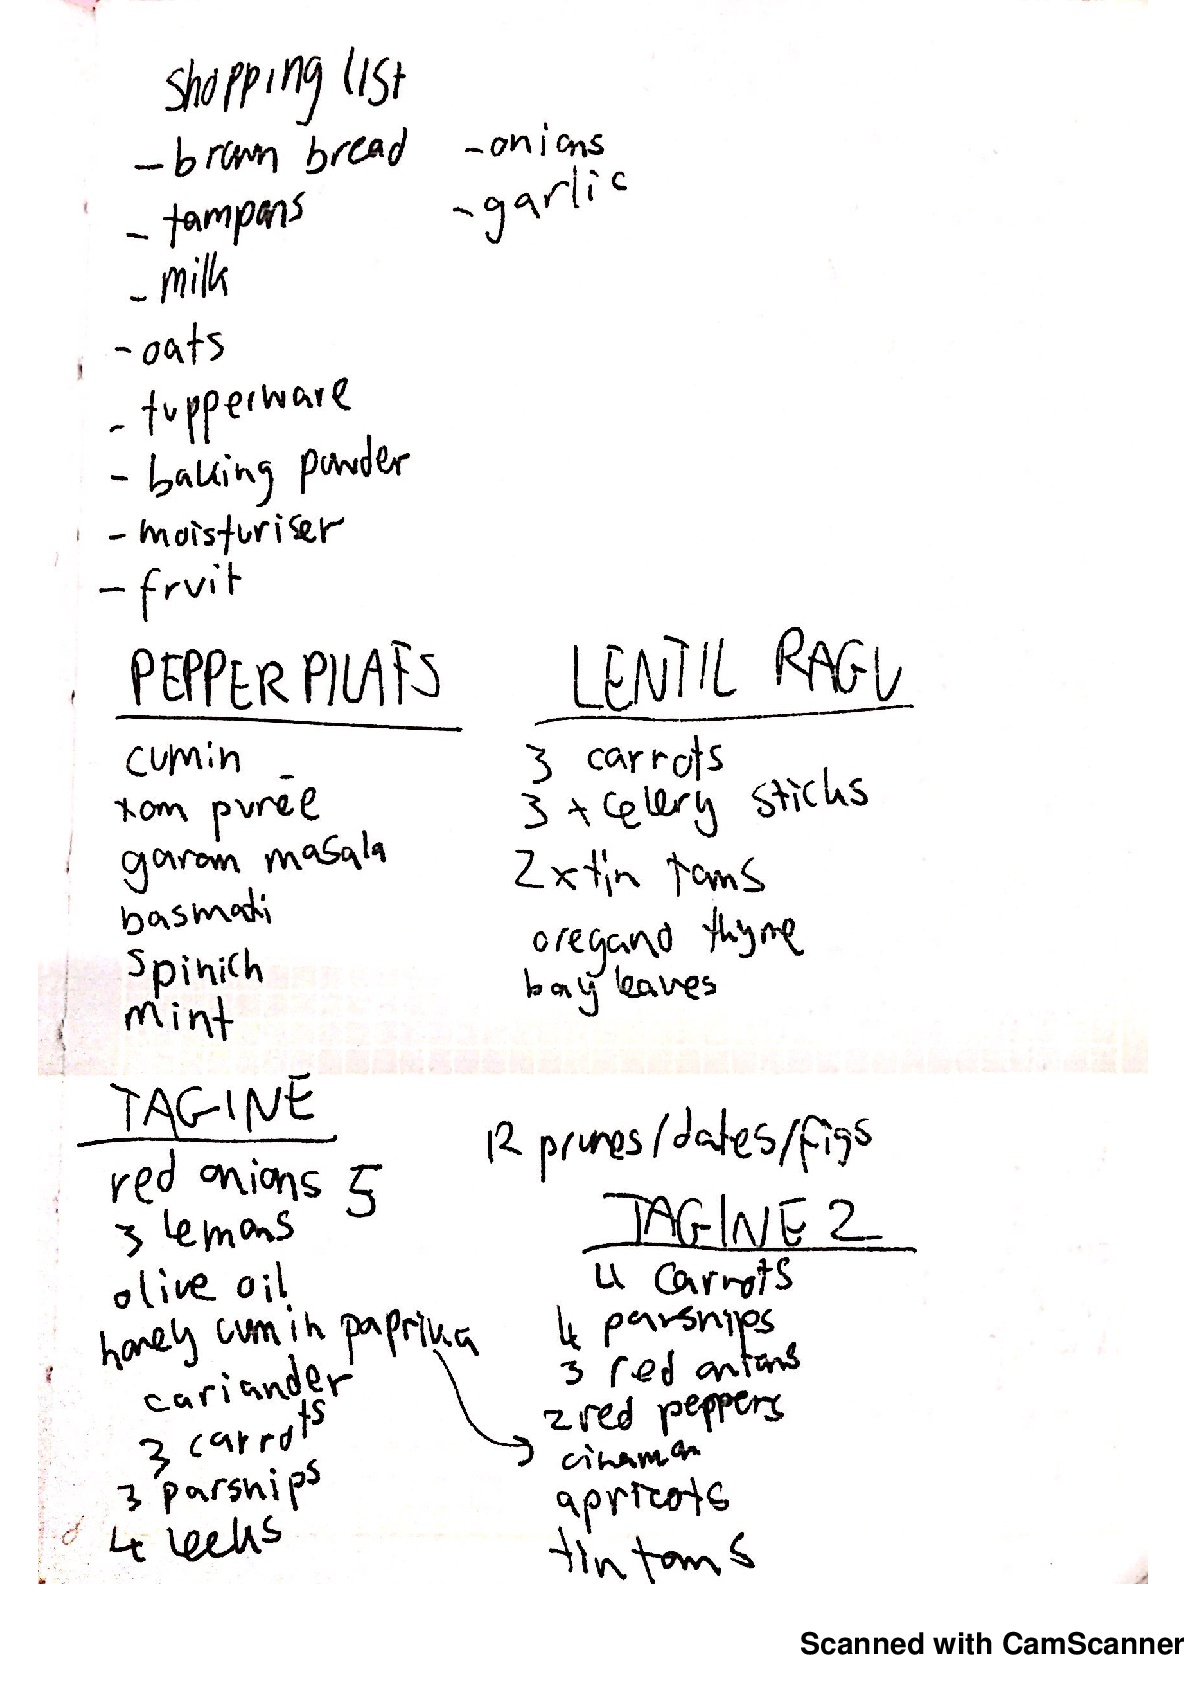 shopping list
- brown bread
- tampons
- milk
- oats
- tupperware
- baking powder
- moisturiser
- fruit
- onions
- garlic
PEPPER PILAFS
cumin
tom purée
garam masala
basmati
spinich
mint
LENTIL RAGU
3 carrots
3 x celery sticks
2 x tin toms
oregano thyme
bay leaves
TAGINE
red onions 5
3 lemons
olive oil
honey cumin paprika
coriander
3 carrots
3 parsnips
4 leeks
12 prunes/dates/figs
TAGINE 2
4 carrots
4 parsnips
3 red onions
2 red peppers
cinamon
apricots
tin toms
Scanned with CamScanner